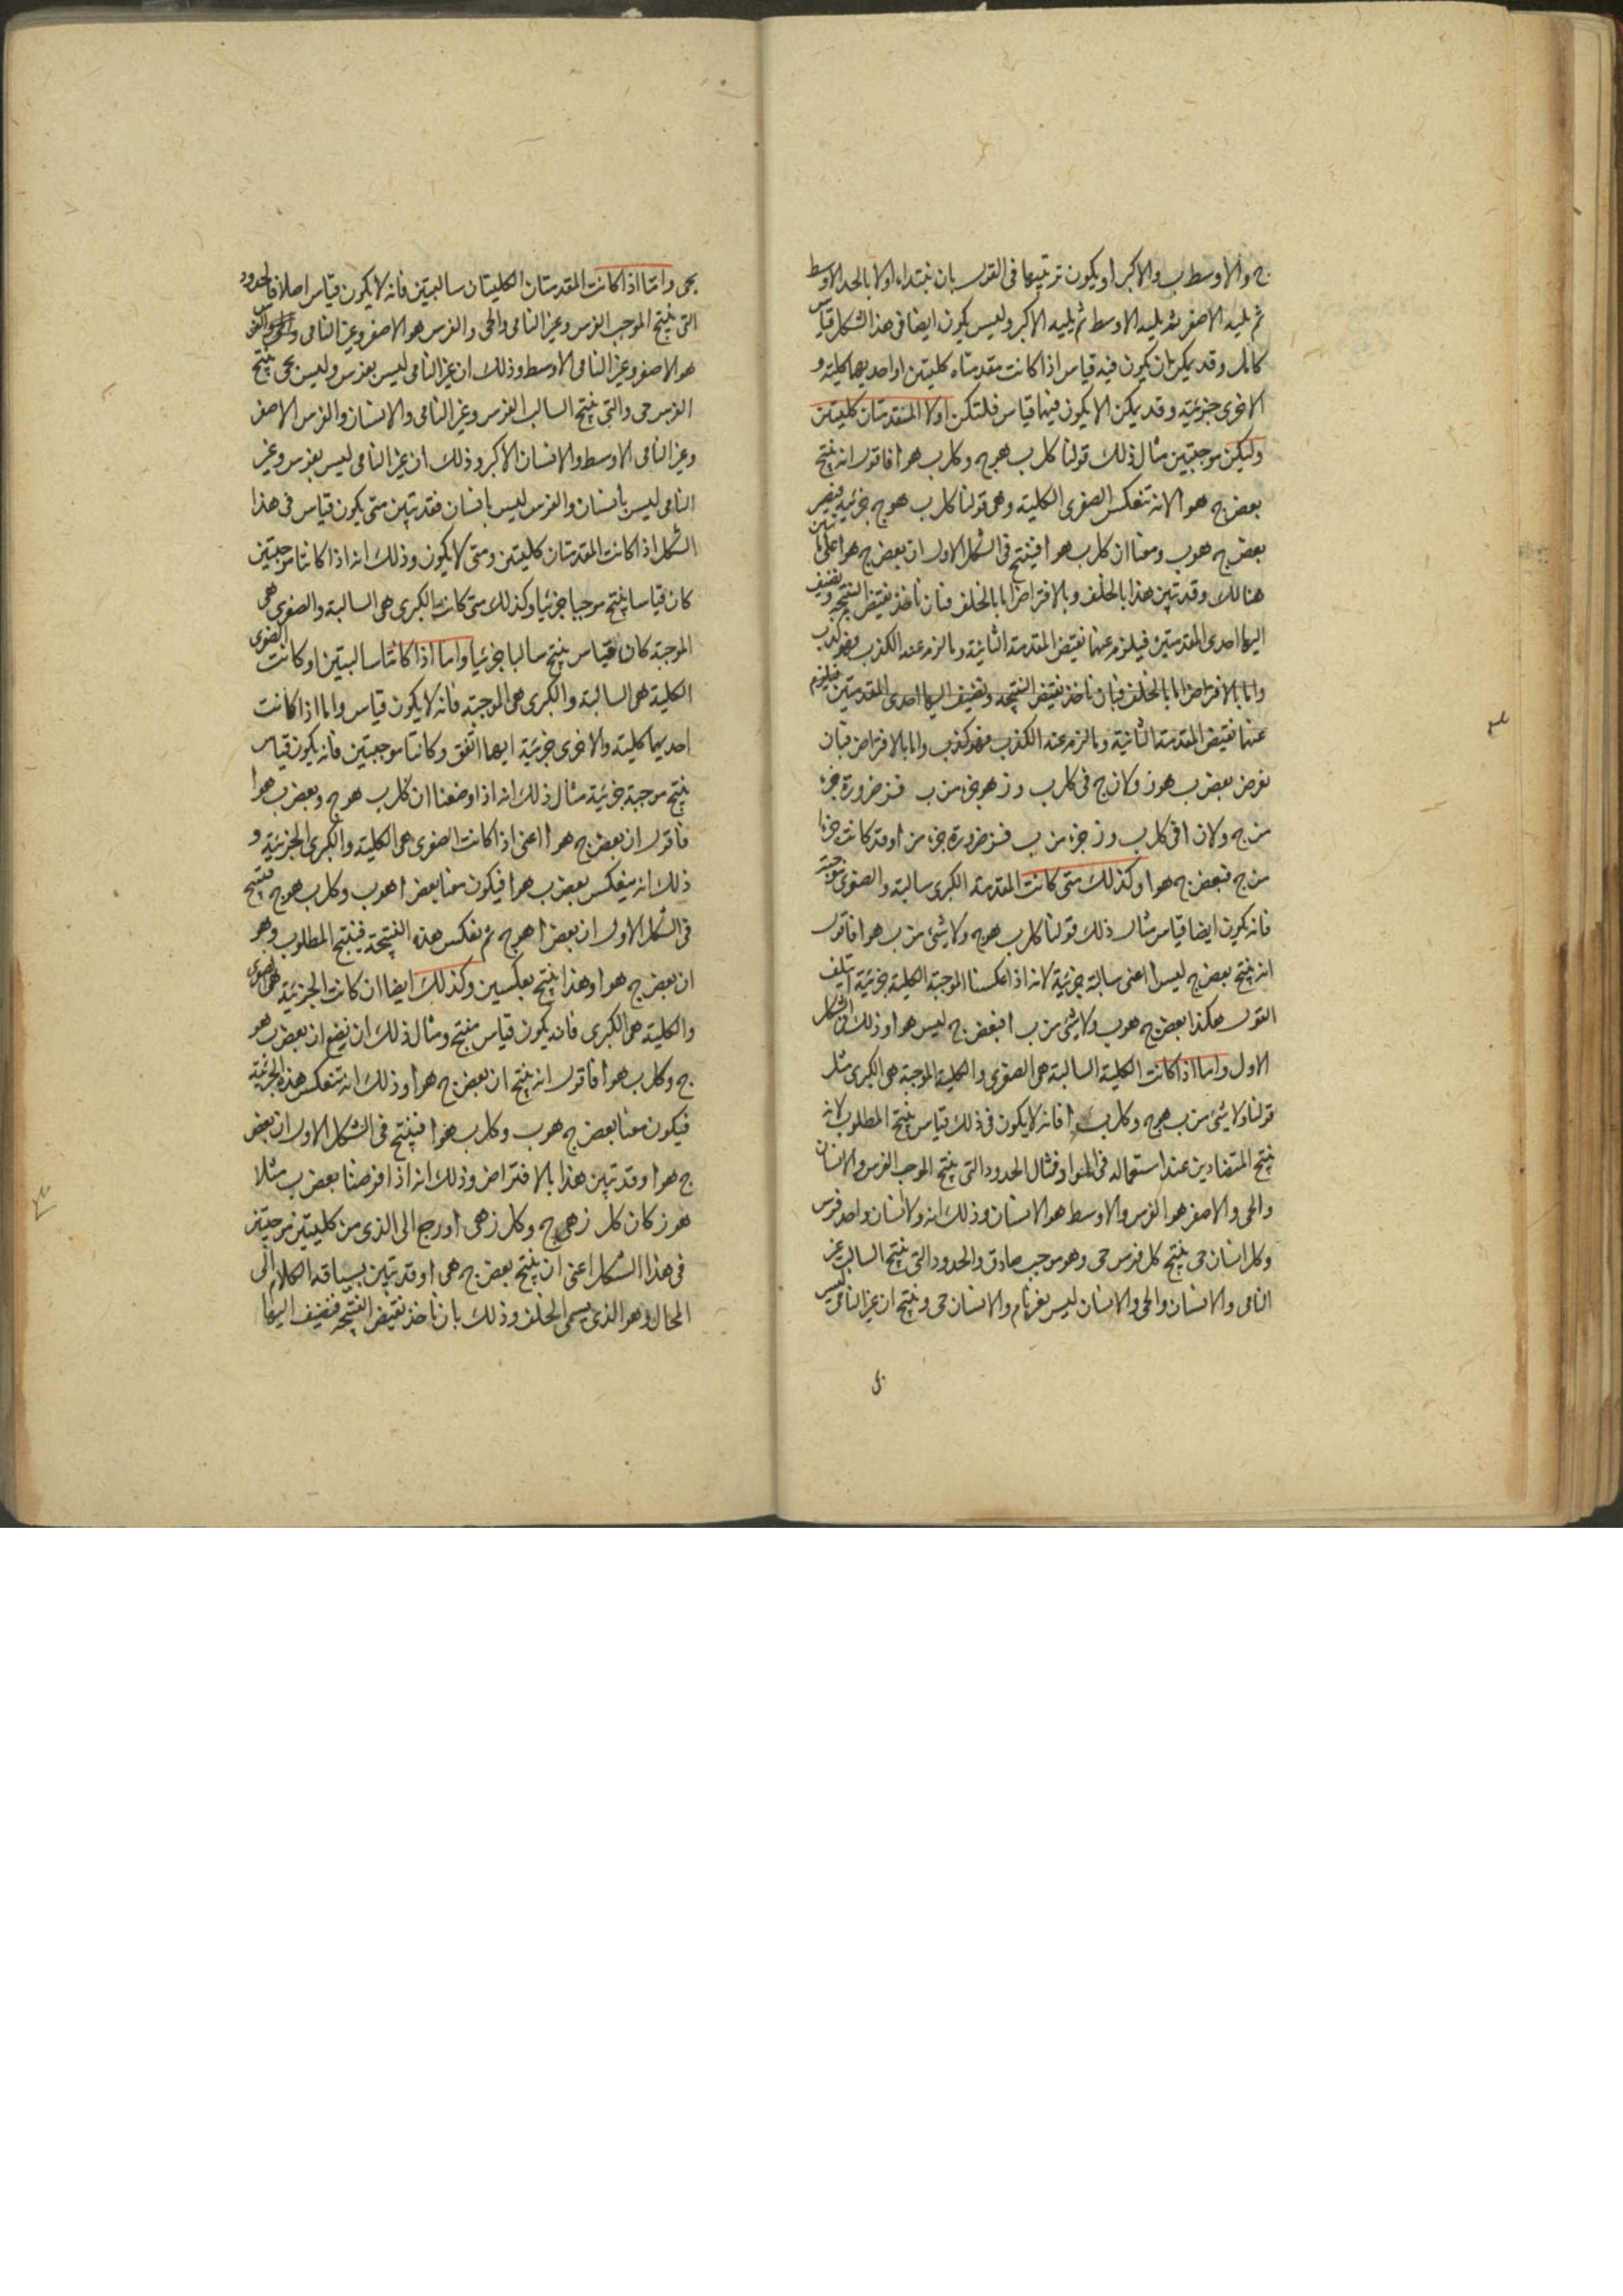 ج والاوسط ب والاكبر ا ويكون ترتيبها فى القول بان نبتداء اولا بالحد الاوسط
ثم يليه الاصغر ثم يليه الاوسط ثم يليه الاكبر وليس يكون ايضا فى هذا الشكل قياس
كامل وقد يمكن ان يكون فيه قياس اذا كانت مقدمتاه كليتين او احديهما كلية و
الاخرى جزئية وقد يمكن الا يكون فيهما قياس فلتكن اولا المتقدمتان كليتين
وليكن موجبتين مثال ذلك قولنا كل ب هو ج وكل ب هو ا فاقول انه ينتج
بعض ج هو ا لانه تنعكس الصغرى الكلية وهى قولنا كل ب هو ج جزئية فيصير
بعض ج هو ب ومعنا ان كل ب هو ا فينتج فى الشكل الاول ان بعض ج هو ا على ما تبين
هنالك وقد تبين هذا بالخلف وبالافتراض اما بالخلف فبان ناخذ نقيض النتيجة ونضيف
اليها احدى المقدمتين فيلزم عنها نقيض المقدمة الثانية وما لزم عنه الكذب فهو كذب
واما بالافتراض اما بالخلف فبان ناخذ نقيض النتيجة ونضيف اليها احدى المقدمتين فيلزم
عنها نقيض المقدمة الثانية وما لزم عنه الكذب فهو كذب واما بالافتراض فبان
نفرض بعض ب هو ز ولان ج فى كل ب و ز هو جزء من ب فز ضرورة جزء
من ج ولان ا فى كل ب و ز جزء من ب فز ضرورة جزء من ا وقد كانت جزءا
من ج فبعض ج هو ا وكذلك متى كانت المقدمة الكبرى سالبة والصغرى موجبة
فانه يكون ايضا قياس مثال ذلك قولنا كل ب هو ج ولا شىء من ب هو ا فاقول
انه ينتج بعض ج ليس ا اعنى سالبة جزئية لانه اذا عكسنا الموجبة الكلية جزئية ايتلف
القول هكذا بعض ج هو ب ولا شىء من ب ا فبعض ج ليس هو ا وذلك فى الشكل
الاول واما اذا كانت الكلية السالبة هى الصغرى والكلية الموجبة هى الكبرى مثل
قولنا ولا شىء من ب هو ج وكل ب ا فانه لا يكون فى ذلك قياس ينتج المطلوب لانه
ينتج المتضادين عند استعماله فى المواد فمثال الحدود التى ينتج الموجب الفرس والانسان
والحى والاصغر هو الفرس والاوسط هو الانسان وذلك انه ولا انسان واحد فرس
وكل انسان حى ينتج كل فرس حى وهو موجب صادق والحدود التى ينتج السالب غير
النامى والانسان والحى والانسان ليس بغير نام والانسان حى وينتج ان غير النامى ليس
بحى واما اذا كانت المقدمتان الكليتان سالبتين فانه لا يكون قياس اصلا فالحدود
التى ينتج الموجب الفرس وغير النامى والحى والفرس هو الاصغر وغير النامى
هو الاصغر وغير النامى الاوسط وذلك ان غير النامى ليس بفرس وليس بحى ينتج
الفرس حى والتى ينتج السالب الفرس وغير النامى والانسان والفرس الاصغر
وغير النامى الاوسط والانسان الاكبر وذلك ان غير النامى ليس بفرس وغير
النامى ليس بانسان والفرس ليس بانسان فقد تبين متى يكون قياس فى هذا
الشكل اذا كانت المقدمتان كليتين ومتى لا يكون وذلك انه اذا كانتا موجبتين
كان قياسا ينتج موجبا جزئيا وكذلك متى كانت الكبرى هى السالبة والصغرى هى
الموجبة كان قياس ينتج سالبا جزئيا واما اذا كانتا سالبتين او كانت الصغرى
الكلية هى السالبة والكبرى هى الموجبة فانه لا يكون قياس واما اذا كانت
احديهما كلية والاخرى جزئية ايهما اتفق وكانتا موجبتين فانه يكون قياس
ينتج موجبة جزئية مثال ذلك انه اذا وضعنا ان كل ب هو ج وبعض ب هو ا
فاقول ان بعض ج هو ا اعنى اذا كانت الصغرى هى الكلية والكبرى الجزئية و
ذلك انه ينعكس بعض ب هو ا فيكون معنا بعض ا هو ب وكل ب هو ج فينتج
فى الشكل الاول ان بعض ا هو ج ثم نعكس هذه النتيجة فينتج المطلوب وهو
ان بعض ج هو ا وهذا ينتج بعكسين وكذلك ايضا ان كانت الجزئية هى الصغرى
والكلية هى الكبرى فانه يكون قياس منتج ومثال ذلك ان نضع ان بعض ب هو
ج وكل ب هو ا فاقول انه ينتج ان بعض ج هو ا وذلك انه تنعكس هذه الجزئية
فيكون معنا بعض ج هو ب وكل ب هو ا فينتج فى الشكل الاول ان بعض
ج هو ا وقد تبين هذا بالافتراض وذلك انه اذا افرضنا بعض ب مثلا
هو ز كان كل ز هى ج وكل ز هى ا ورجع الى الذى من كليتين موجبتين
فى هذا الشكل اعنى ان ينتج بعض ج هى ا وقد تبين بسياقة الكلام الى
المحال وهو الذى يسمى الخلف وذلك بان ناخذ نقيض النتيجة فنضيف اليها